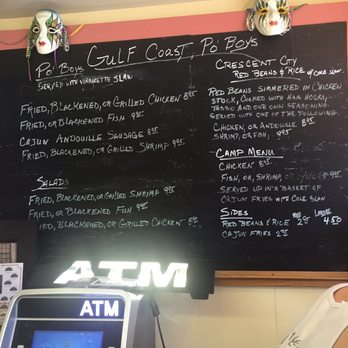 Gulf Coast Po' Boys
Po' Boys
Served with vinaigrette slaw
Fried, Blackened, or Grilled Chicken 8
Fried, or Blackened Fish 9
Cajun Andouille Sausage 8
Fried, Blackened, or Grilled Shrimp 9
Salads
Fried, Blackened, or Grilled Shrimp 9
Fried, or Blackened Fish 9
ied, Blackened, or Grilled Chicken 8
Crescent City
Red Beans & Rice w/ Cole Slaw
Red Beans simmered in Chicken
Stock, Cooked with Ham Hocks,
Tasso and our own Seasoning.
Served with one of the following
Chicken, or Andouille 8
Shrimp, or Fish, 9
Camp Menu
Chicken 8
Fish, or, Shrimp,
Served up in a basket of
Cajun Fries with Cole Slaw
Sides
Reg Large
Red Beans & Rice 2 4.50
Cajun Fries 2
ATM
ATM